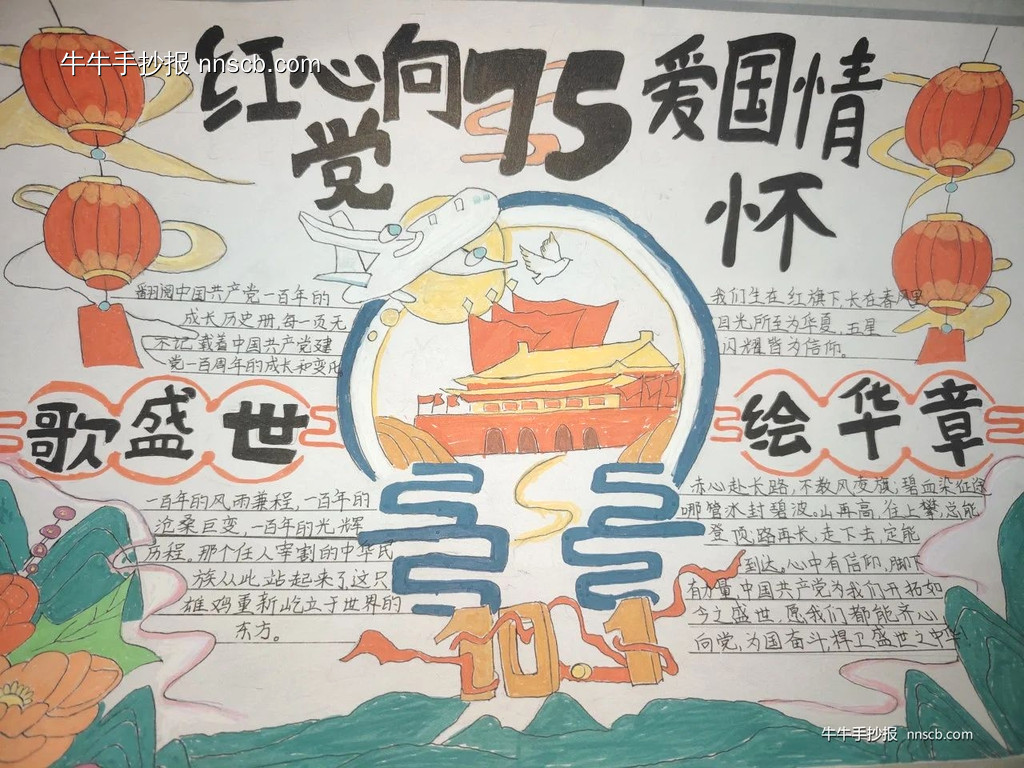 牛牛手抄报 nnscb.com
红心向党
75
爱国情怀
翻阅中国共产党一百年的
成长历史册,每一页无
不记载着中国共产党建
党一百周年的成长和变化
我们生在红旗下,长在春风里
目光所至为华夏,五星
闪耀皆为信仰。
歌盛世
绘华章
一百年的风雨兼程,一百年的
沧桑巨变,一百年的光辉
历程。那个任人宰割的中华民
族从此站起来了这只
雄鸡重新屹立于世界的
东方。
赤心赴长路,不教风夜旗,碧血染征途
哪管冰封碧波。山再高,往上攀,总能
登顶,路再长,走下去,定能
到达。心中有信仰,脚下
有力量,中国共产党为我们开拓如
今之盛世,愿我们都能齐心
向党,为国奋斗,捍卫盛世之中华
101
牛牛手抄报 nnscb.com